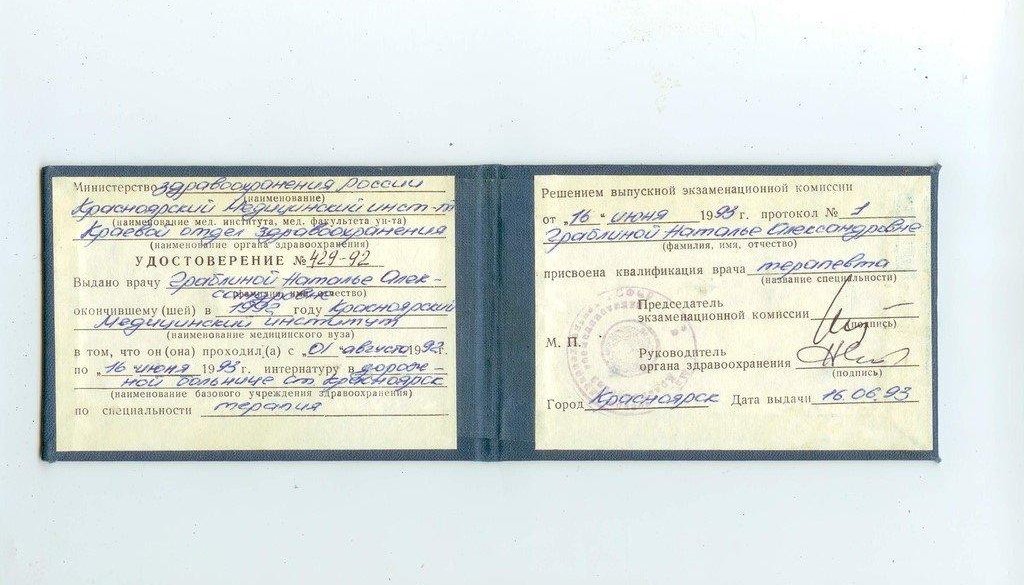 Министерство здравоохранения России
(наименование)
Красноярский Медицинский инст-т
(наименование мед. института, мед. факультета ун-та)
Краевой отдел здравоохранения
(наименование органа здравоохранения)
УДОСТОВЕРЕНИЕ № 429-92
Выдано врачу Граблиной Наталье Алек-
сандровне
(фамилия, имя, отчество)
окончившему (шей) в 1992 году Красноярский
Медицинский институт
(наименование медицинского вуза)
в том, что он (она) проходил (а) с „01 августа 1992 г.
по „16 июня 1993 г. интернатуру в дорож-
ной больнице ст. Красноярск
(наименование базового учреждения здравоохранения)
по специальности терапия
Решением выпускной экзаменационной комиссии
от „16 " июня 1993 г. протокол № 1
Граблиной Наталье Александровне
(фамилия, имя, отчество)
присвоена квалификация врача терапевта
(название специальности)
Председатель
экзаменационной комиссии
(подпись)
М. П.
Руководитель
органа здравоохранения
(подпись)
Город Красноярск Дата выдачи 16.06.93